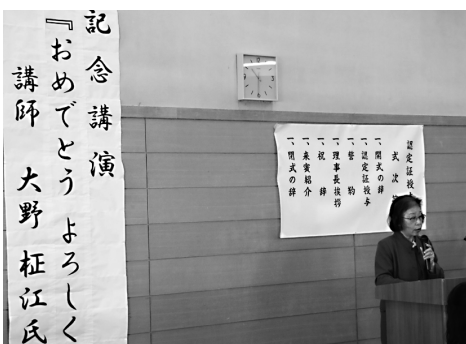 記念講演
『おめでとう よろしく
講師 大野 柾江氏
認定証授与
式次
一、開式の辞
一、認定証授与
一、誓約
一、理事長挨拶
一、祝辞
一、来賓紹介
一、閉式の辞